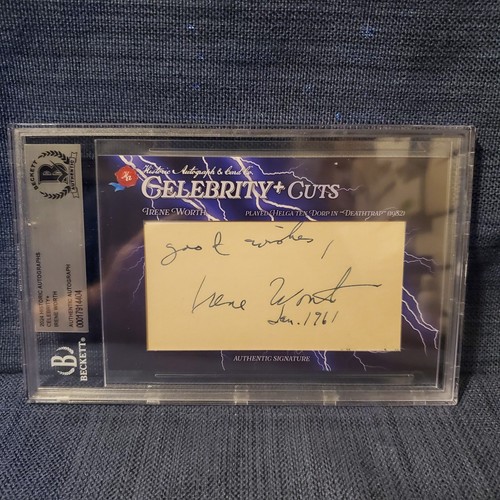 Historic Autograph & Card Co.
CELEBRITY+ CUTS
IRENE WORTH
PLAYED HELGA TEN DORP IN "DEATHTRAP" (1982)
good wishes,
Irene Worth
Jan. 1961
AUTHENTIC SIGNATURE
BECKETT
AUTHENTICATED
2024 HISTORIC AUTOGRAPHS
CELEBRITY+
IRENE WORTH
AUTHENTIC AUTOGRAPH
00017914404
BECKETT